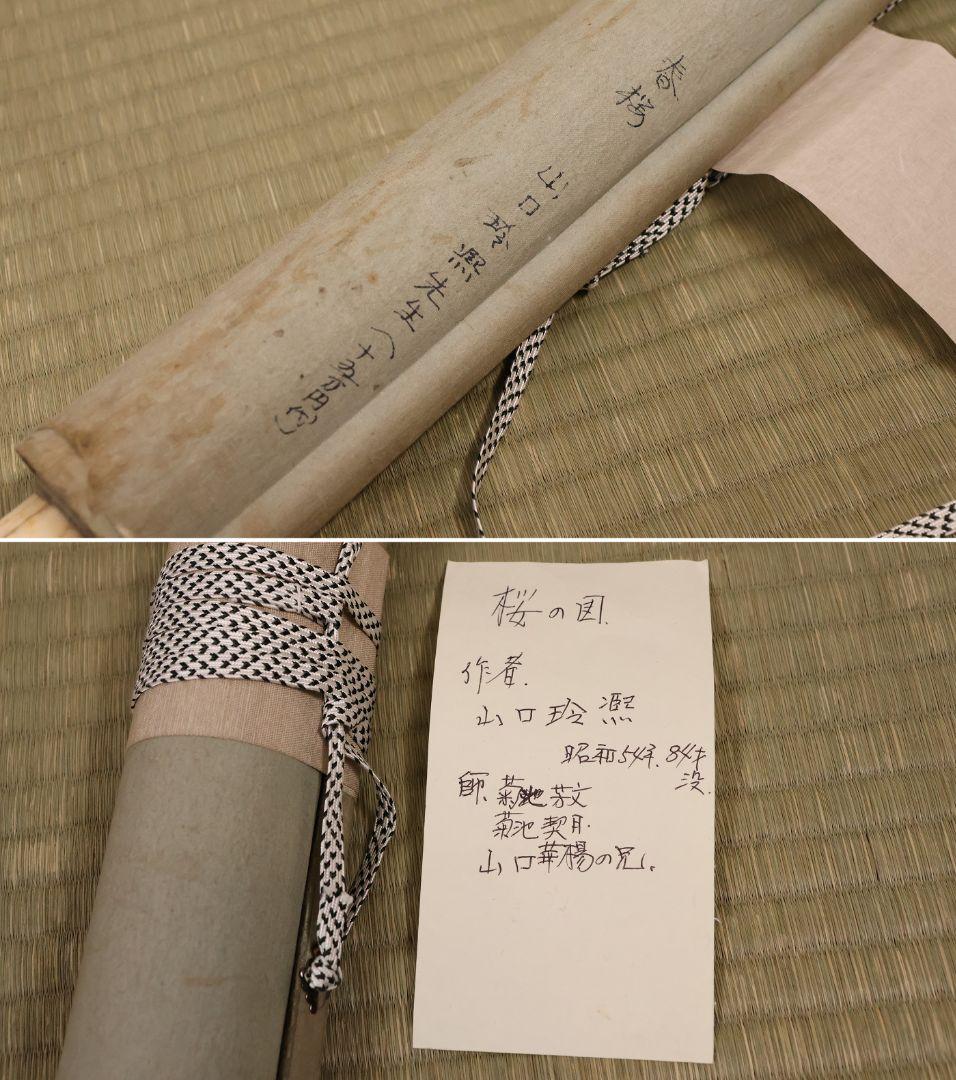 春桜
山口玲熈先生(十五万円念)
桜の図.
作者.
山口玲熈
昭和54年.84才
没.
師.菊池芳文
菊池契月.
山口華楊の兄.